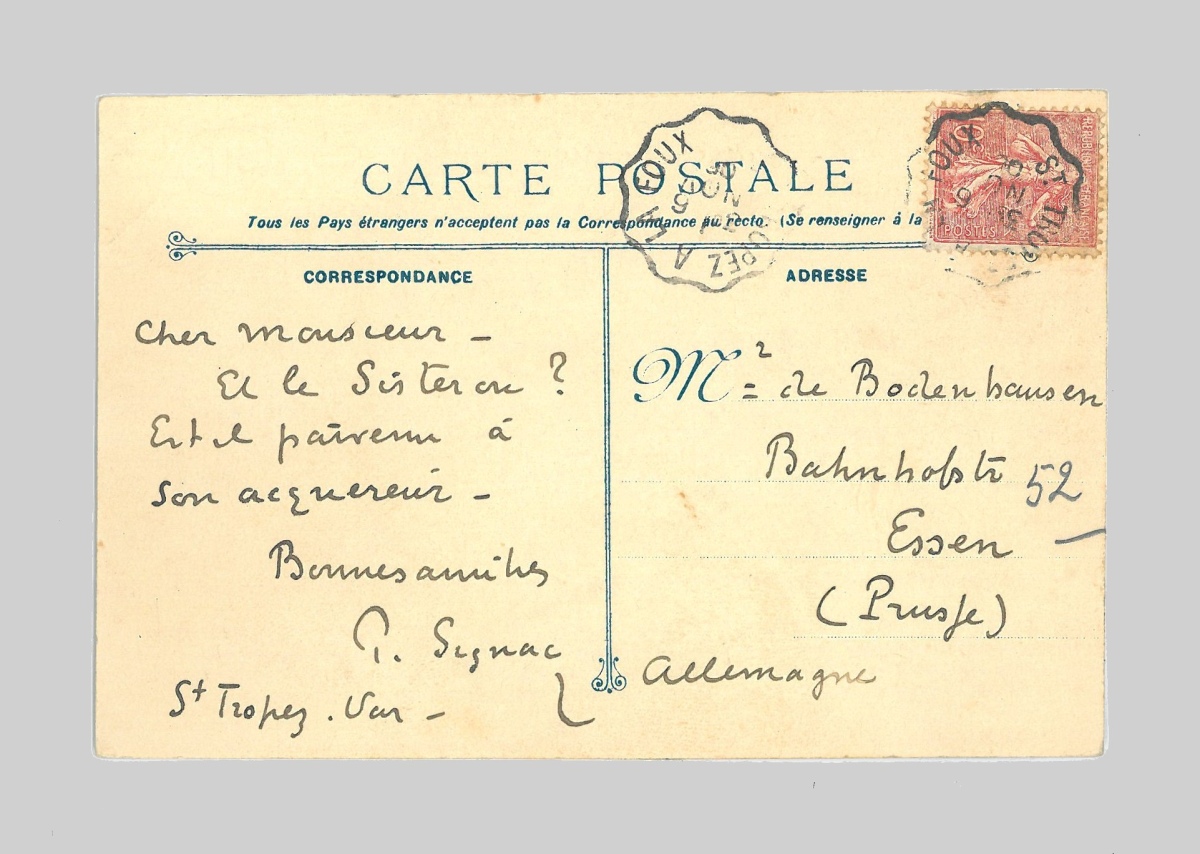 CARTE POSTALE
Tous les Pays étrangers n'acceptent pas la Correspondance au recto. (Se renseigner à la
CORRESPONDANCE
Cher Monsieur —
Et le Sisteron ?
Est il parvenu à
son acquereur —
Bonnes amities
P. Signac
St Tropez . Var —
ADRESSE
Mr de Bodenhausen
Bahnhofstr 52
Essen
(Prusse)
Allemagne
LA FOUX
ST. TROP
POSTES